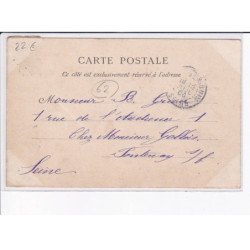 22€
CARTE POSTALE
Ce côté est exclusivement réservé à l'adresse
62
Monsieur B.
1 rue de l'Audience 1
Chez Monsieur
Fontenay s/s
Seine